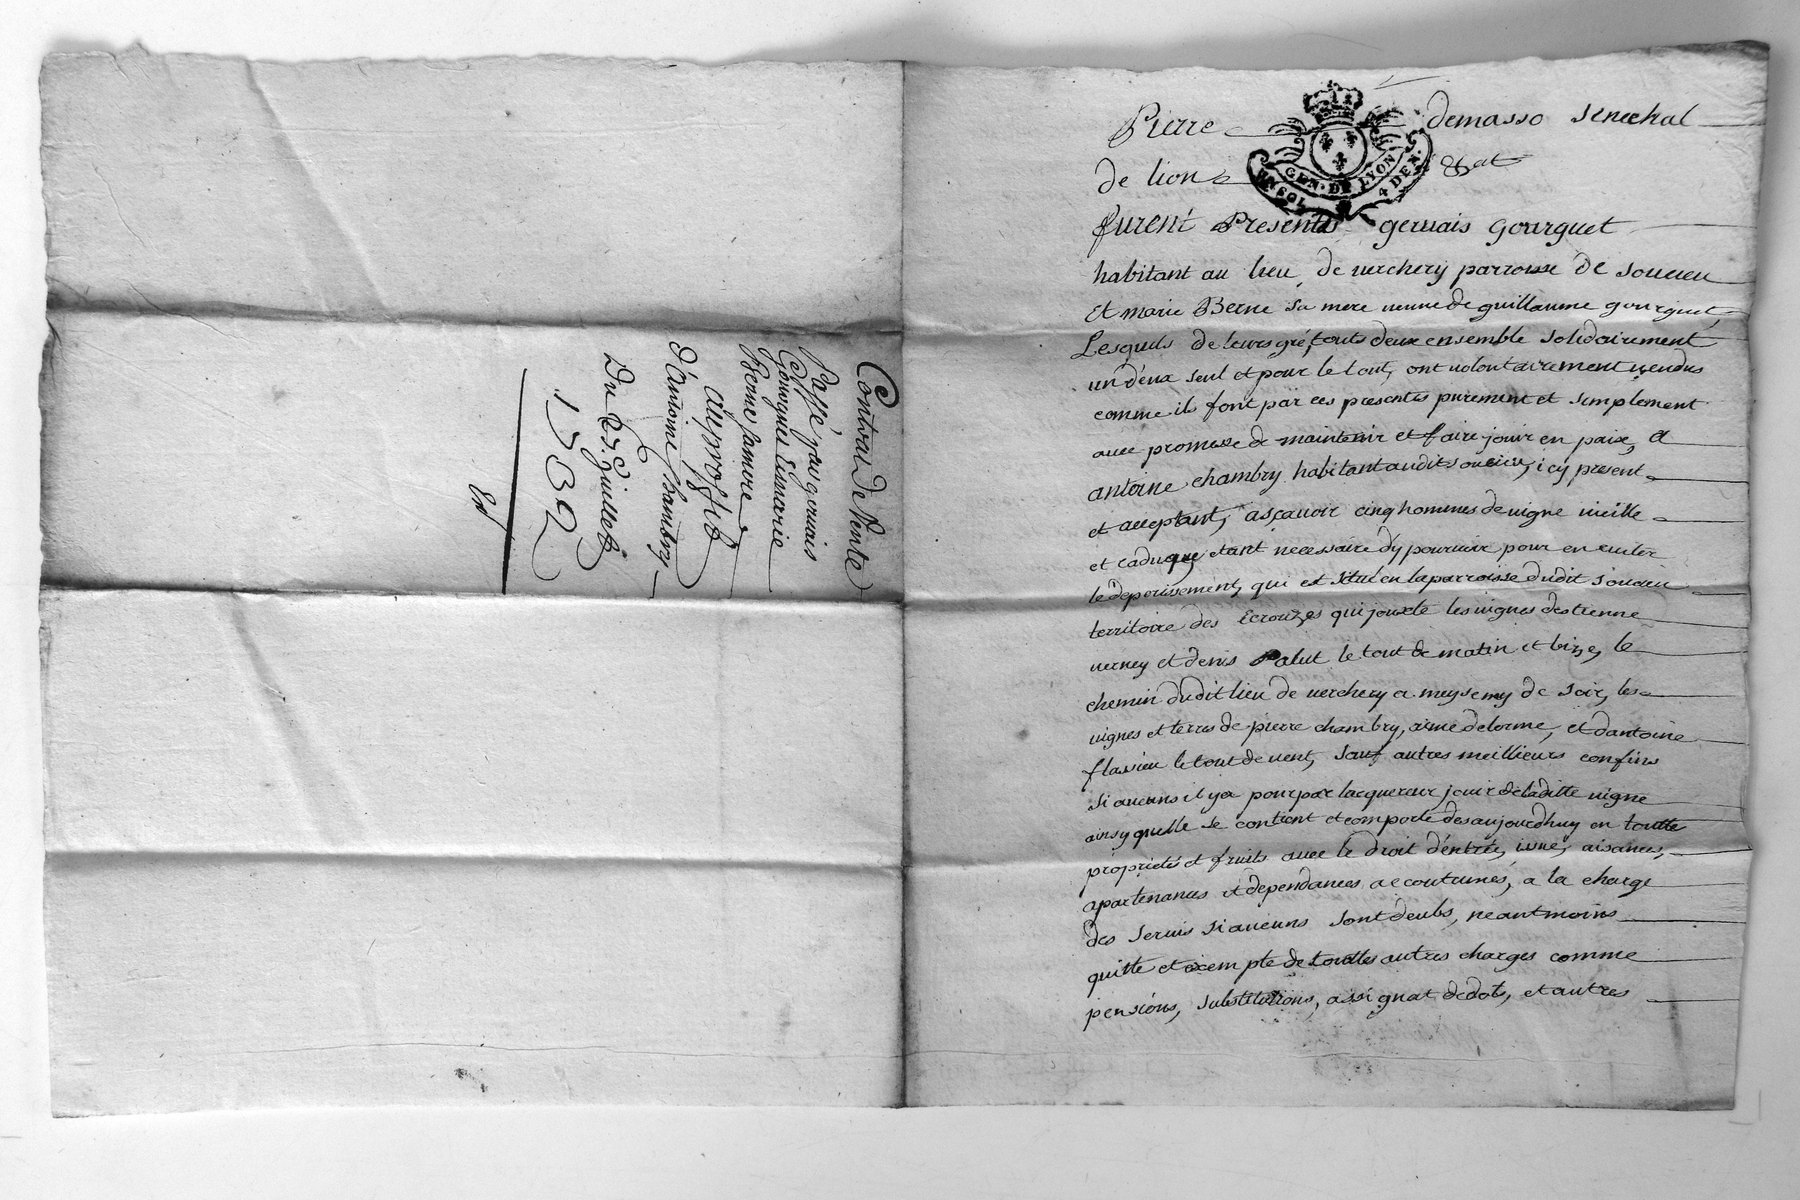 Contrat De Vente
Passé par gervais
Gourguet Et marie
Berne sa mere
au proffit
D'Antoine Chambry
Du 25. Juillet
1732
Pierre demasso senechal
de lion &at
GEN. DE LYON
UN SOL 4 DEN.
furent Presents gervais gourguet
habitant au lieu de verchery parroisse de soucieu
et marie Berne sa mere veuve de guillaume gourguet
Lesquels de leurs gré, touts deux ensemble solidairement
un d'eux seul et pour le tout, ont volontairement vendus
comme ils font par ces presentes purement et simplement
avec promesse de maintenir et faire jouir en paix, a
antoine chambry habitant audit soucieu, icy present
et acceptant, asçavoir cinq hommes de vigne vieille
et caduque etant necessaire d'y pourvoir pour en eviter
le deperissement, qui est situé en la parroisse dudit soucieu
territoire des Ecrouzes qui jouxte les vignes destienne
verney et denis Palut le tout de matin et bize, le
chemin dudit lieu de verchery a meysemy de soir, les
vignes et terres de pierre chambry, aimé delorme, et dantoine
flassieu le tout de vent, sauf autres meillieurs confins
si aucuns il y a pour par lacquereur jouir de laditte vigne
ainsy quelle se contient et comporte des aujourdhuy en toutte
proprieté et fruits avec le droit d'entrée, issue, aisances,
apartenances et dependances accoutumés, a la charge
des servis si aucuns sont deubs, neantmoins
quitte et exempte de touttes autres charges comme
pensions, substitutions, assignat de dots, et autres